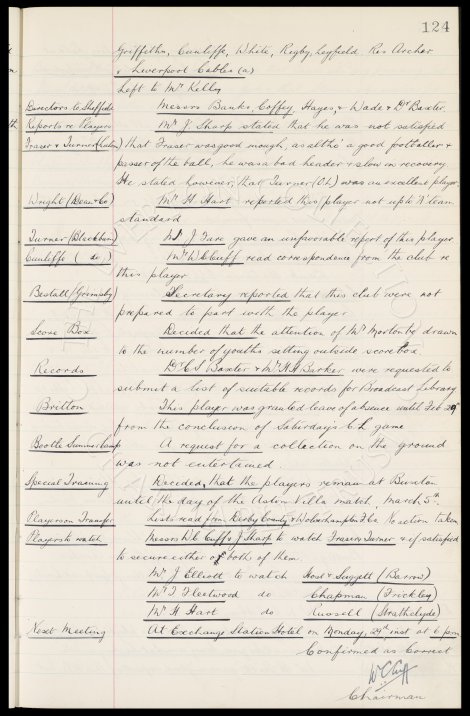 124
Griffiths, Cunliffe, White, Rigby, Leyfield. Res Archer
& Liverpool Cables (a)
Left to Mr Kelly
Directors to Sheffield Messrs Banks, Coffey, Hayes, & Wade & Dr Baxter.
Reports re Players Mr J. Sharp stated that he was not satisfied
Fraser & Turner that Fraser was good enough, as altho' a good footballer &
passer of the ball, he was a bad header & slow in recovery
He stated however, that Turner (O.L) was an excellent player
Wright (Dean & Co) Mr H Hart reported this player not up to 'A' team
standard
Turner (Blackburn) Mr J Fare gave an unfavorable report of this player
Cunliffe (do) Mr W C Cuff read correspondence from the club re
this player
Bestall (Grimsby) Secretary reported that this club were not
prepared to part with the player
Score Box Decided that the attention of Mr Morton be drawn
to the number of youths sitting outside score box
Records Dr C S Baxter & Mr W Parker were requested to
submit a list of suitable records for Broadcast Library
Britton This player was granted leave of absence until Feb
from the conclusion of Saturday's C L game
Bootle Summer Camp A request for a collection on the ground
was not entertained.
Special Training Decided that the players remain at Buxton
until the day of the Aston Villa match, March 5th.
Players on Transfer Lists read from Derby County & Wolverhampton F Cs. No action taken
Players to watch Messrs W C Cuff & J Sharp to watch Fraser & Turner & if satisfied
to secure either or both of them.
Mr J Elliott to watch Host & Suggett (Barrow)
Mr T Fleetwood do Chapman (Frickley)
Mr H Hart do Russell (Strathclyde)
Next Meeting At Exchange Station Hotel on Monday, 24th inst at 6 pm
Confirmed as Correct
W C Cuff
Chairman